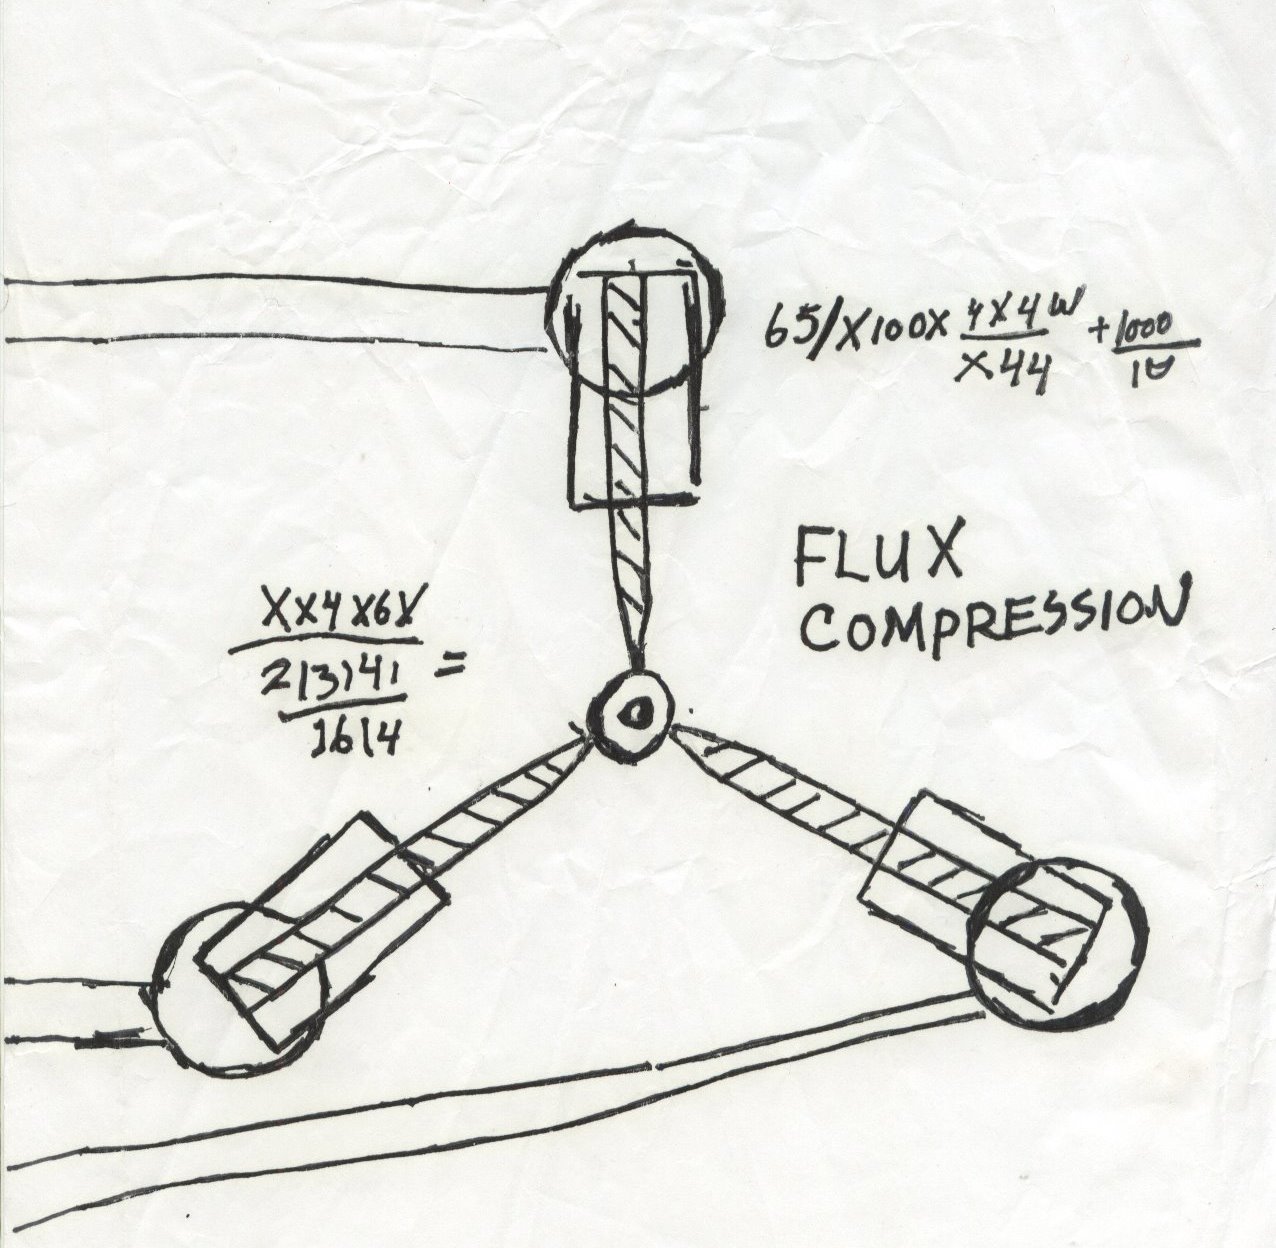 65/X100X 4X4W/X44 +1000/10
FLUX
COMPRESSION
XX4X6X
213141 =
1614